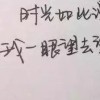 时光如此
我一眼望去